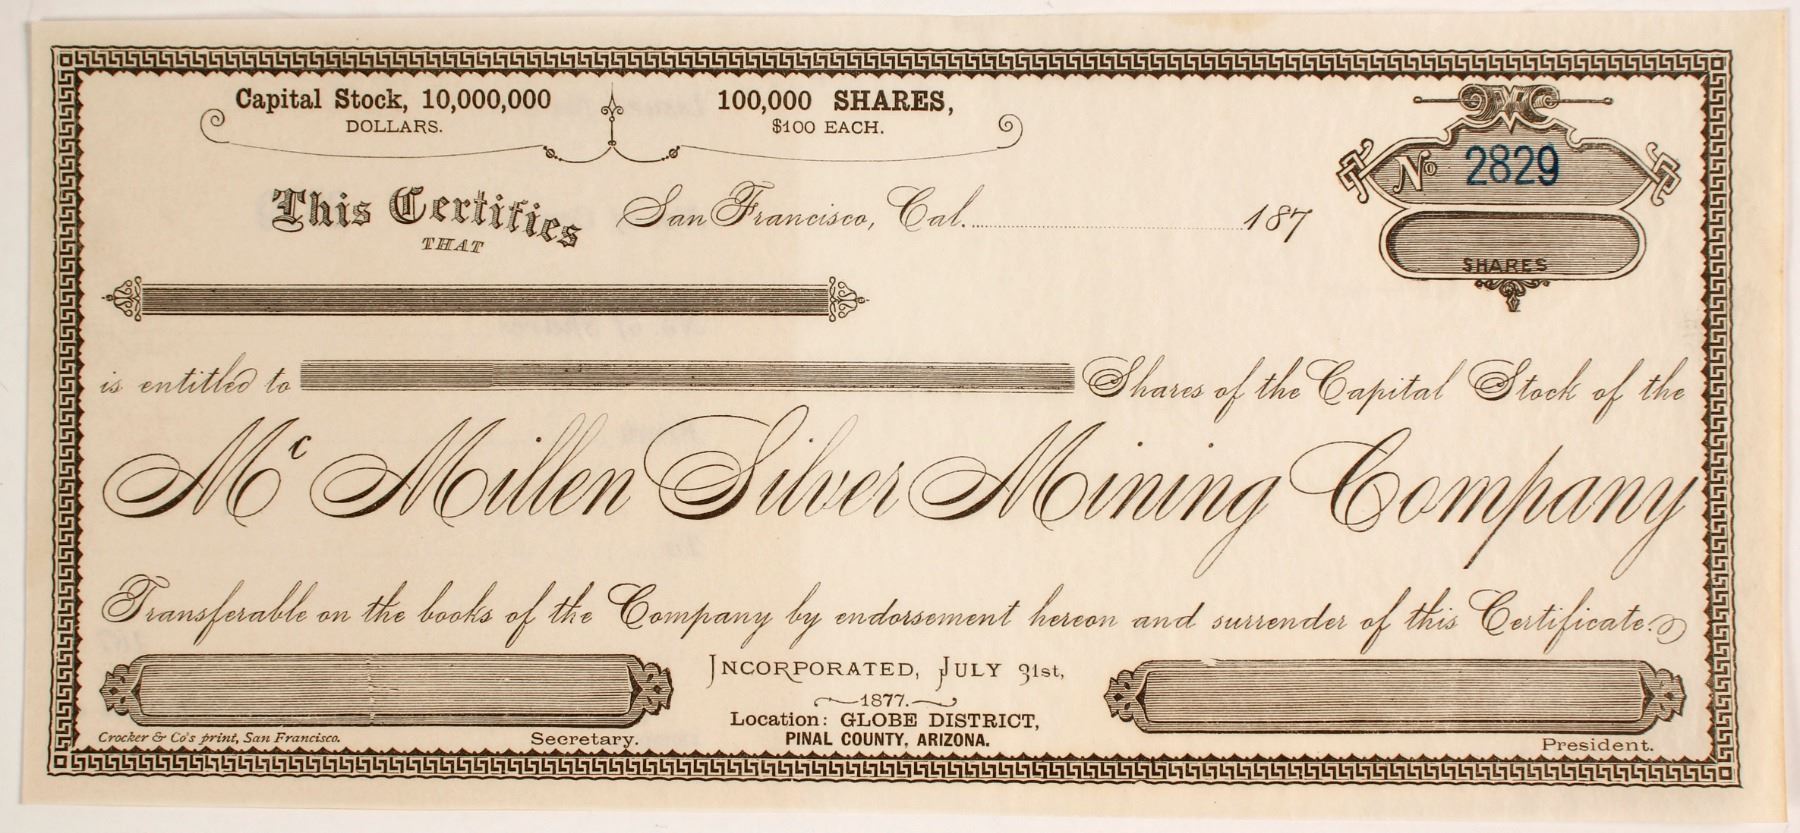 Capital Stock, 10,000,000 DOLLARS.
100,000 SHARES, $100 EACH.
No 2829
SHARES
This Certifies THAT
San Francisco, Cal. 187
is entitled to Shares of the Capital Stock of the
Mc Millen Silver Mining Company
Transferable on the books of the Company by endorsement hereon and surrender of this Certificate.
INCORPORATED, JULY 31st,
1877.
Location: GLOBE DISTRICT,
PINAL COUNTY, ARIZONA.
Crocker & Co's print, San Francisco.
Secretary.
President.